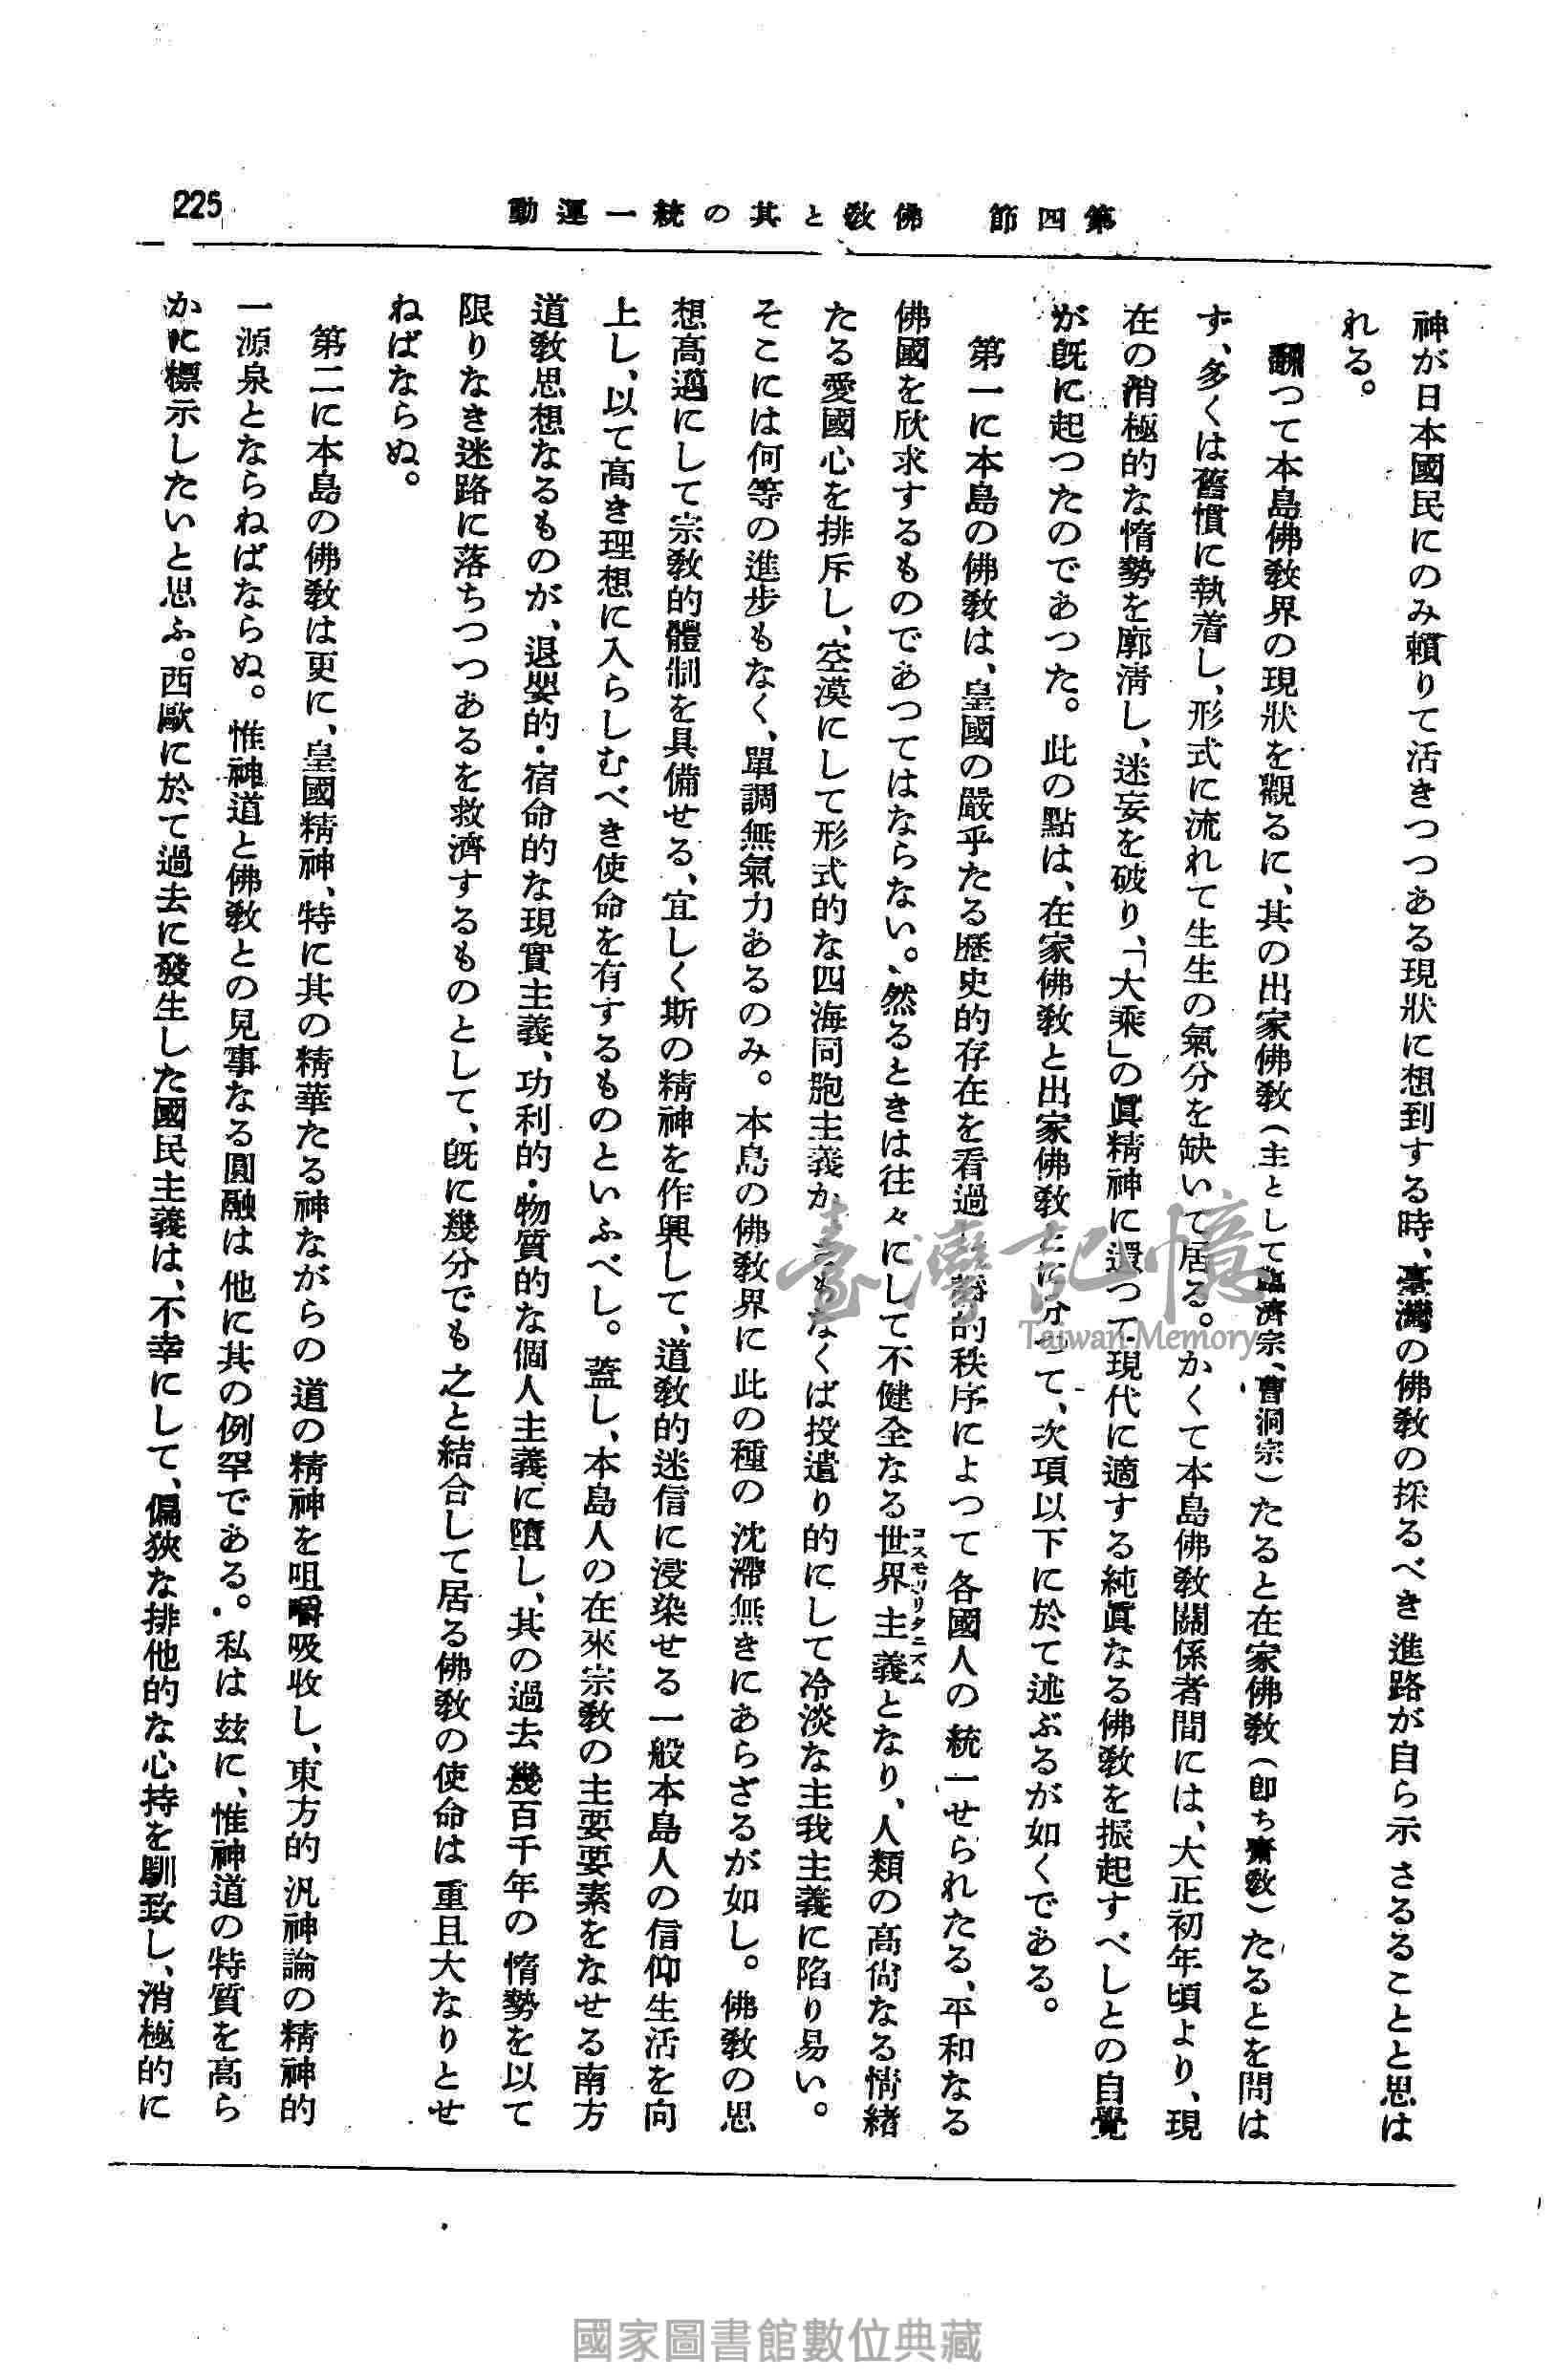 225
第四節　佛敎と其の統一運動
神が日本國民にのみ賴りて活きつつある現狀に想到する時、臺灣の佛敎の採るべき進路が自ら示さるることと思は
れる。
飜つて本島佛敎界の現狀を觀るに、其の出家佛敎（主として臨濟宗、曹洞宗）たると在家佛敎（卽ち齋敎）たるとを問は
ず、多くは舊慣に執着し、形式に流れて生生の氣分を缺いて居る。かくて本島佛敎關係者間には、大正初年頃より、現
在の消極的な惰勢を廓淸し、迷妄を破り、「大乘」の眞精神に還つて現代に適する純眞なる佛敎を振起すべしとの自覺
が旣に起つたのであつた。此の點は、在家佛敎と出家佛敎とに分つて、次項以下に於て述ぶるが如くである。
第一に本島の佛敎は、皇國の嚴乎たる歷史的存在を看過し的秩序によつて各國人の統一せられたる、平和なる
佛國を欣求するものであつてはならない。然るときは往々にして不健全なる世界主義コスモポリタニズムとなり、人類の高尙なる情緖
たる愛國心を排斥し、空漠にして形式的な四海同胞主義か、さもなくば投遣り的にして冷淡な主我主義に陷り易い。
そこには何等の進步もなく、單調無氣力あるのみ。本島の佛敎界に此の種の沈滯無きにあらざるが如し。佛敎の思
想高邁にして宗敎的體制を具備せる、宜しく斯の精神を作興して、道敎的迷信に浸染せる一般本島人の信仰生活を向
上し、以て高き理想に入らしむべき使命を有するものといふべし。蓋し、本島人の在來宗敎の主要要素をなせる南方
道敎思想なるものが、退嬰的・宿命的な現實主義、功利的・物質的な個人主義に墮し、其の過去幾百千年の惰勢を以て
限りなき迷路に落ちつつあるを救濟するものとして、旣に幾分でも之と結合して居る佛敎の使命は重且大なりとせ
ねばならぬ。
第二に本島の佛敎は更に、皇國精神、特に其の精華たる神ながらの道の精神を咀嚼吸收し、東方的汎神論の精神的
一源泉とならねばならぬ。惟神道と佛敎との見事なる圓融は他に其の例罕である。私は玆に、惟神道の特質を高ら
かに標示したいと思ふ。西歐に於て過去に發生した國民主義は、不幸にして、偏狹な排他的な心持を馴致し、消極的に
臺灣記憶
Taiwan Memory
國家圖書館數位典藏